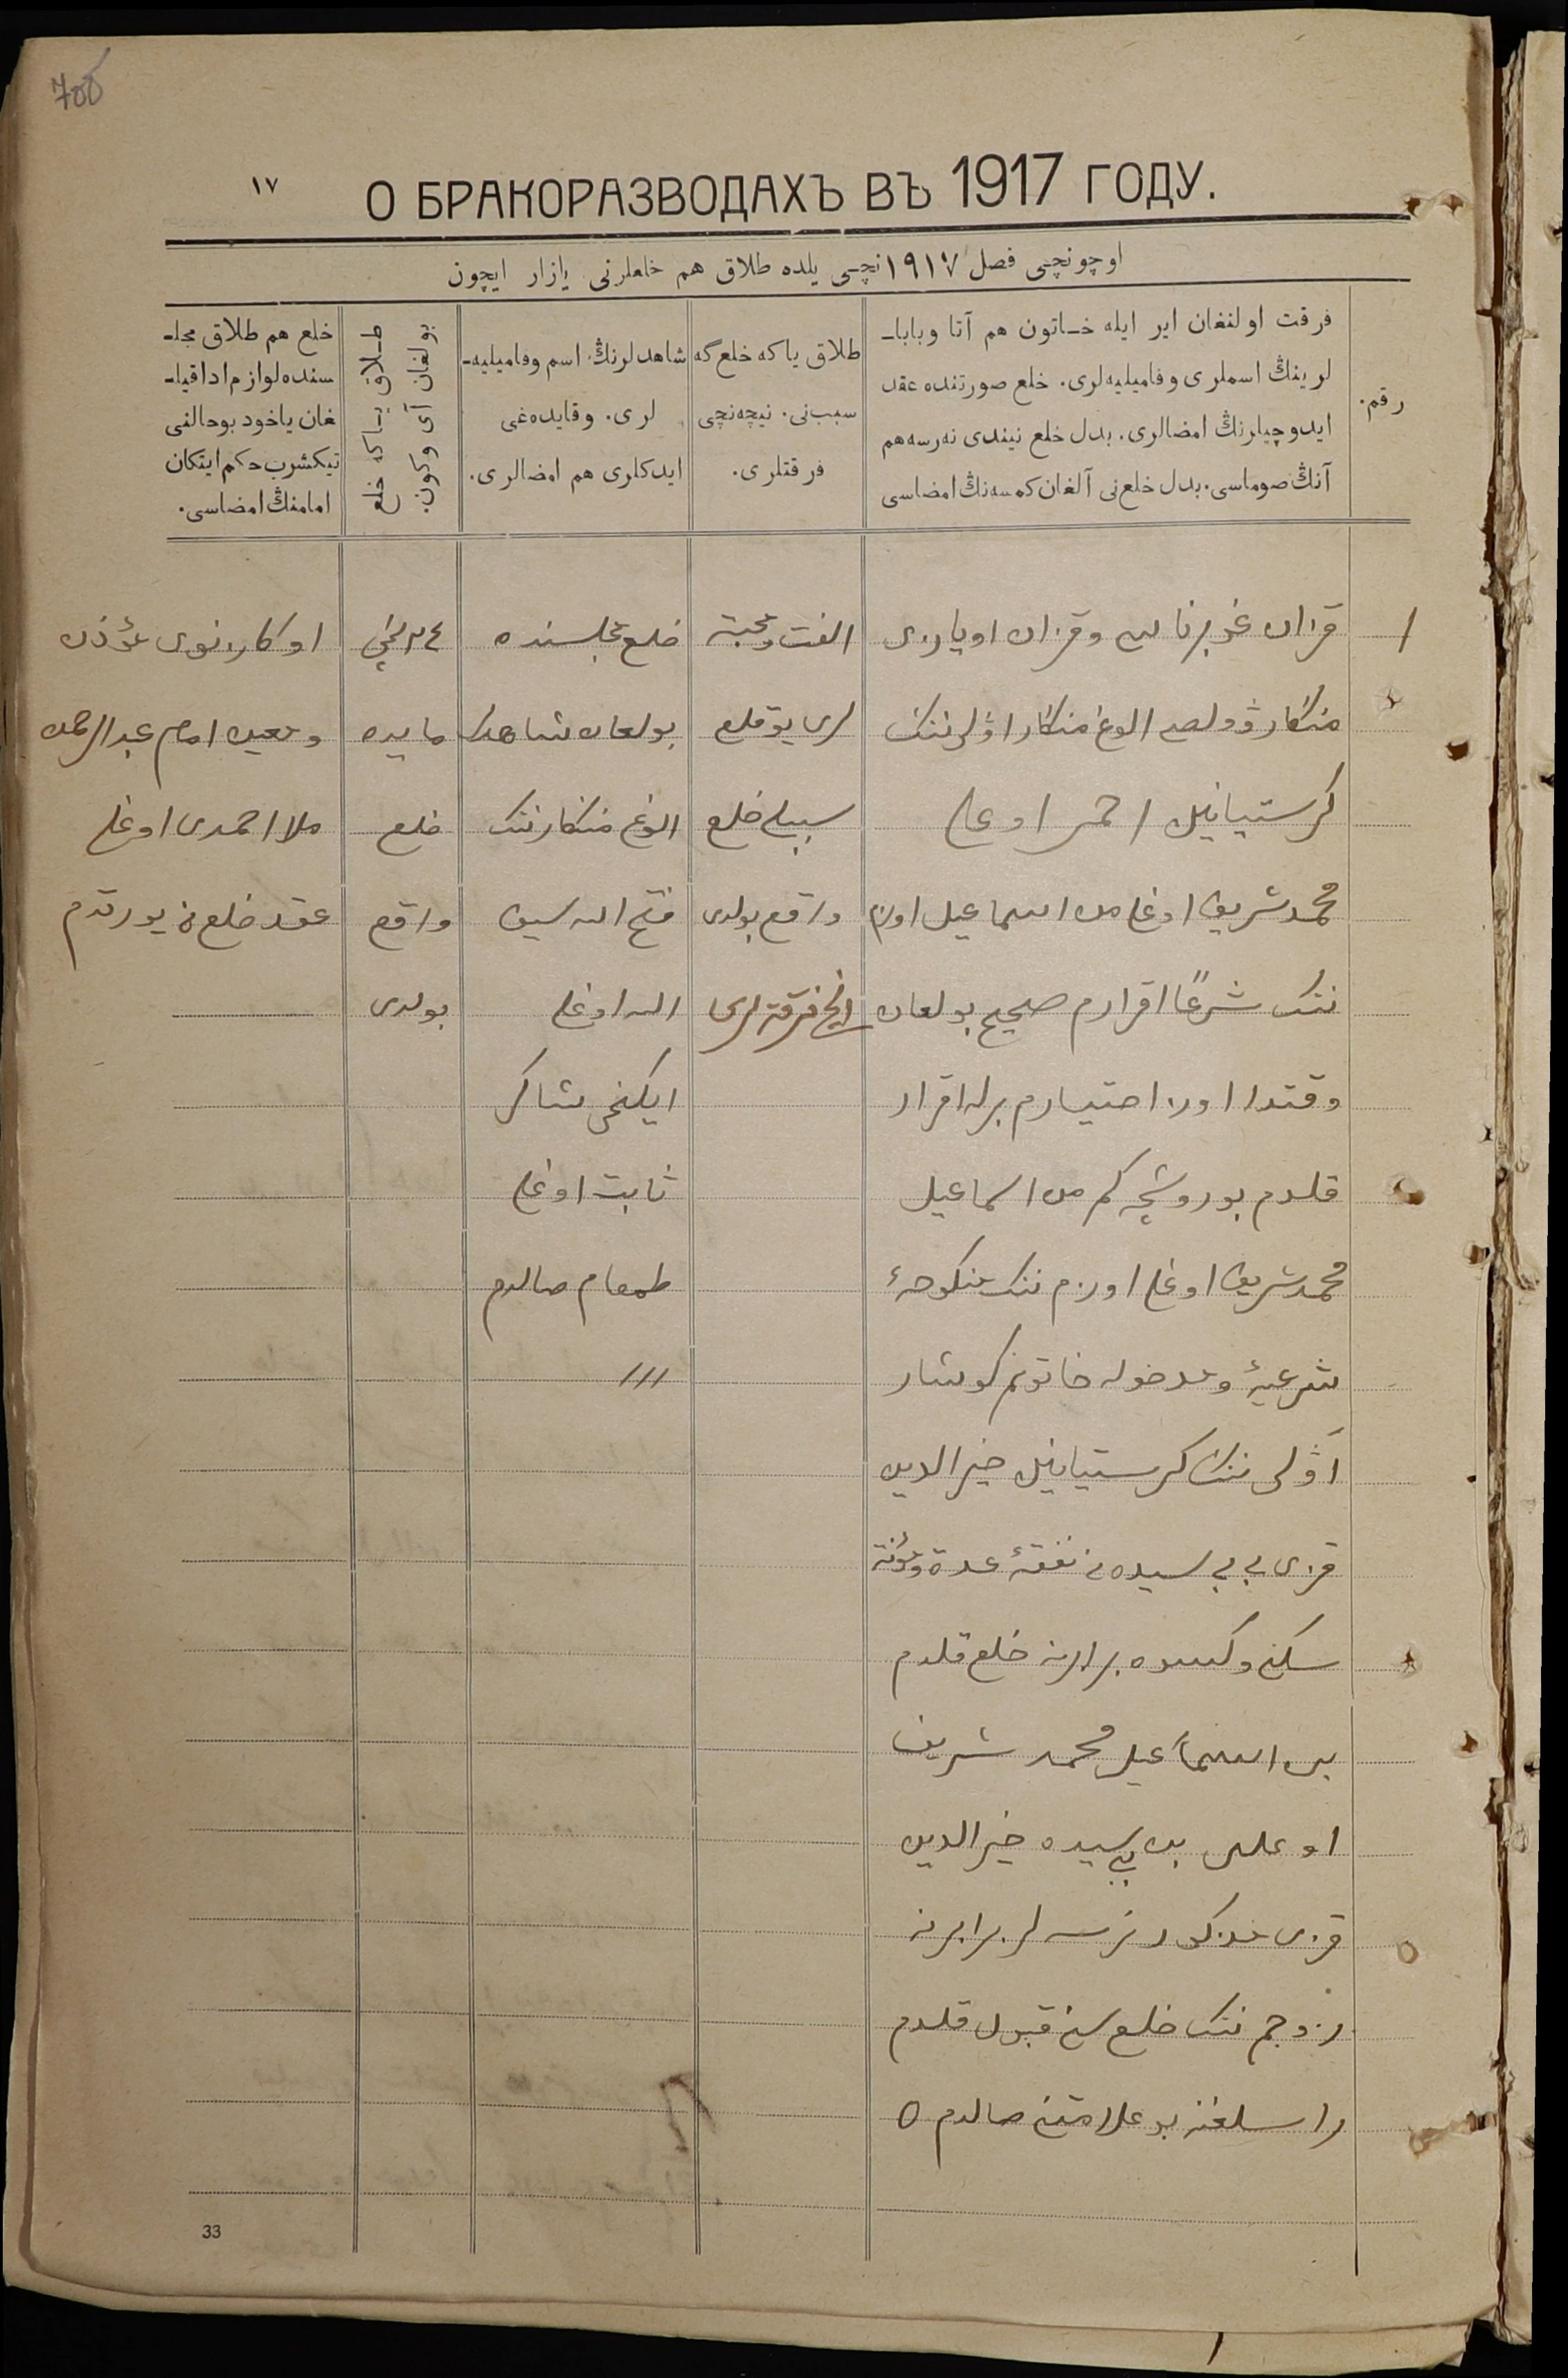 708
١٧
О БРАКОРАЗВОДАХЪ ВЪ 1917 ГОДУ.
اوچونچی فصل ١٩١٧ نچی یلده طلاق هم خلعلرنی یازار ایچون
رقم.
فرقت اولنغان ایر ایله خاتون هم آتا وبابا-
لرینڭ اسملری وفامیلیه‌لری. خلع صورتنده عقد
ایدوچیلرنڭ امضالری. بدل خلع نیندی نه‌رسه هم
آنڭ صوماسی. بدل خلع‌نی آلغان کمسه‌نڭ امضاسی
طلاق یا که خلع گه
سبب‌نی. نیچه‌نچی
فرقتلری.
شاهدلرنڭ اسم وفامیلیه-
لری. وقایده‌غی
ایدکلری هم امضالری.
طلاق یا که خلع
بولغان آی وکون.
خلع هم طلاق مجلـ
سنده لوازم ادا قیلـ
غان یاخود بوحالنی
تیکشرب حکم ایتکان
امامنڭ امضاسی.
١
قزان غوبرناسی وقزان اویازی
منگار ۋولصی الوغ منگار اۋلی ننک
کرستیانیل احمر اوغلی
محمد شریف اوغلی من اسماعیل اوزم
ننک شرعًا اقرارم صحیح بولغان
وقتدا اوز اختیارم برله اقرار
قلدم بو روشچه کم من اسماعیل
محمد شریف اوغلی اوزم ننک منکوحۀ
شرعیۀ ومدخوله خاتونم کوشار
آۋلی ننک کرستیانیل خیر الدین
قزی بی بی سیده نی نفقۀ عدة ومؤنة
سکنی وکسوه برابرینه خلع قلدم
من اسماعیل محمد شریف
اوغلی من بی بی سیده خیر الدین
قزی مذکور نرسه لر برابرینه
زوجم ننک خلع سنی قبول قلدم
راسلغنه بو علامتنی صالدم ٥
الفت ومحبة
لری یوقلق
سببلی خلع
واقع بولدی
انچی فرقتلری
خلع مجلسنده
بولغان شاهدلر
الوغ منگار ننک
فتح الله سیف
الله اوغلی
ایکنچی شاکر
ثابت اوغلی
طمغام صالدم
///
٢٤ نچی
مایده
خلع
واقع
بولدی
اوکازنوی مؤذن
ومعین امام عبد الرحمن
ملا احمدی اوغلی
عقد خلع نی یورتدم
33